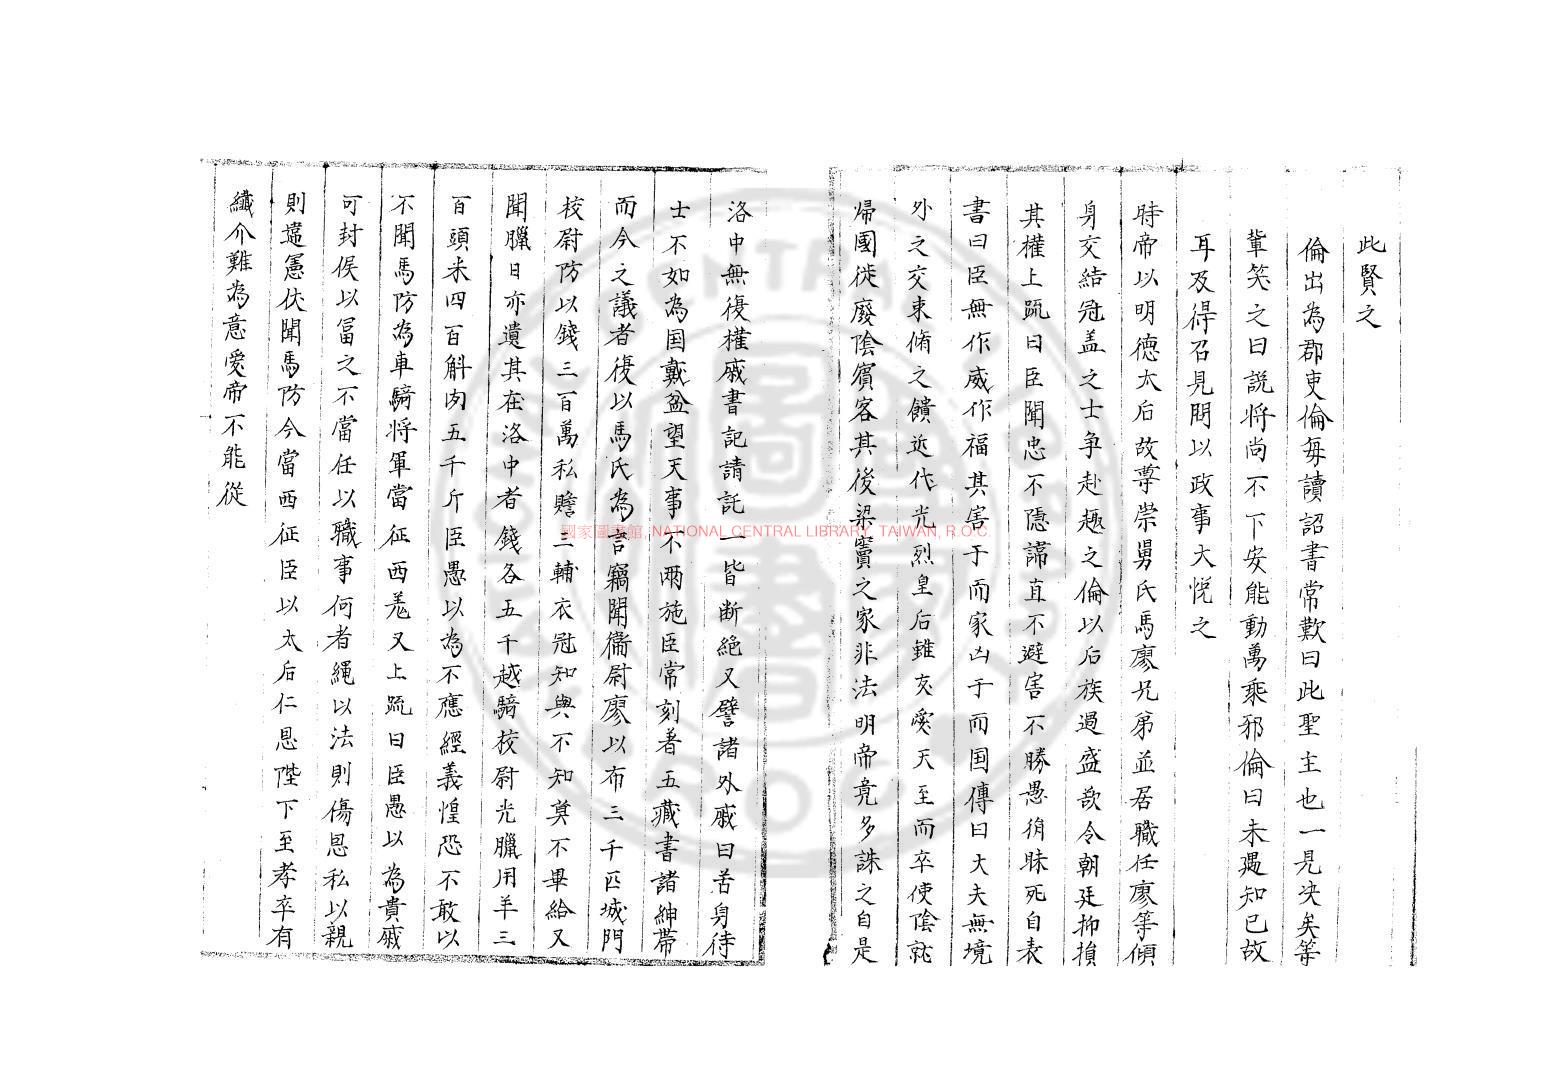 此賢之
倫出為郡吏倫每讀詔書常歎曰此聖主也一見决矣等
輩笑之曰説將尚不下安能動萬乘邪倫曰未遇知已故
耳及得召見問以政事大悅之
時帝以明德太后故尊崇舅氏馬廖兄弟並居職任廖等傾
身交結冠盖之士争赴趣之倫以后族過盛欲令朝廷抑損
其權上疏曰臣聞忠不隱諱直不避害不勝愚狷昧死自表
書曰臣無作威作福其害于而家凶于而国傳曰大夫無境
外之交束脩之饋近代光烈皇后雖友愛天至而卒使陰就
帰國徙廢陰賓客其後梁竇之家非法明帝竟多誅之自是
洛中無復權戚書記請託一皆断絶又譬諸外戚曰苦身待
士不如為国戴盆望天事不兩施臣常刻著五藏書諸紳帶
而今之議者復以馬氏為言竊聞衞尉廖以布三千匹城門
校尉防以錢三百萬私贍三輔衣冠知與不知莫不畢給又
聞臘日亦遺其在洛中者錢各五千越騎校尉光臘用羊三
百頭米四百斛肉五千斤臣愚以為不應經義惶恐不敢以
不聞馬防為車騎將軍當征西羌又上疏曰臣愚以為貴戚
可封侯以富之不當任以職事何者繩以法則傷恩私以親
則違憲伏聞馬防今當西征臣以太后仁恩陛下至孝卒有
纎介難為意愛帝不能從
國家圖書館, NATIONAL CENTRAL LIBRARY, TAIWAN, R.O.C.